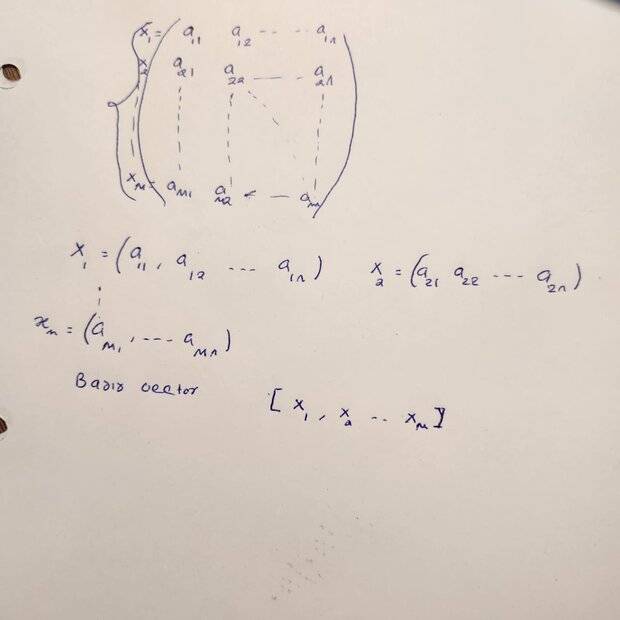 x₁ = a₁₁ a₁₂ - - - - a₁ₙ
x₂ a₂₁ a₂₂ — — - a₂ₙ
xₘ = aₘ₁ aₘ₂ - — aₘₙ
x₁ = (a₁₁, a₁₂ --- a₁ₙ) x₂ = (a₂₁ a₂₂ --- a₂ₙ)
xₘ = (aₘ₁, --- aₘₙ)
Basis vector [x₁, x₂ -- xₘ]